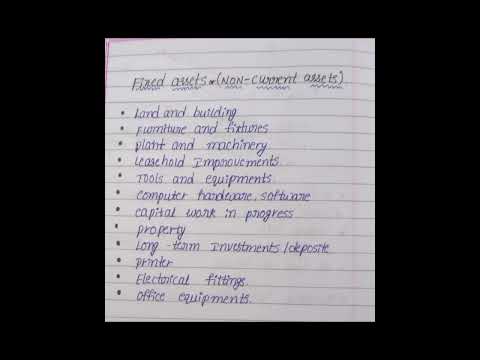 Fixed assets = (NON-Current assets)
• Land and building
• Furniture and fixtures
• plant and machinery
• Leasehold Improvements.
• Tools and equipments
• computer hardware, software
• capital work in progress
• property
• Long term Investments/deposite
• printer
• Electorical fittings.
• office equipments.